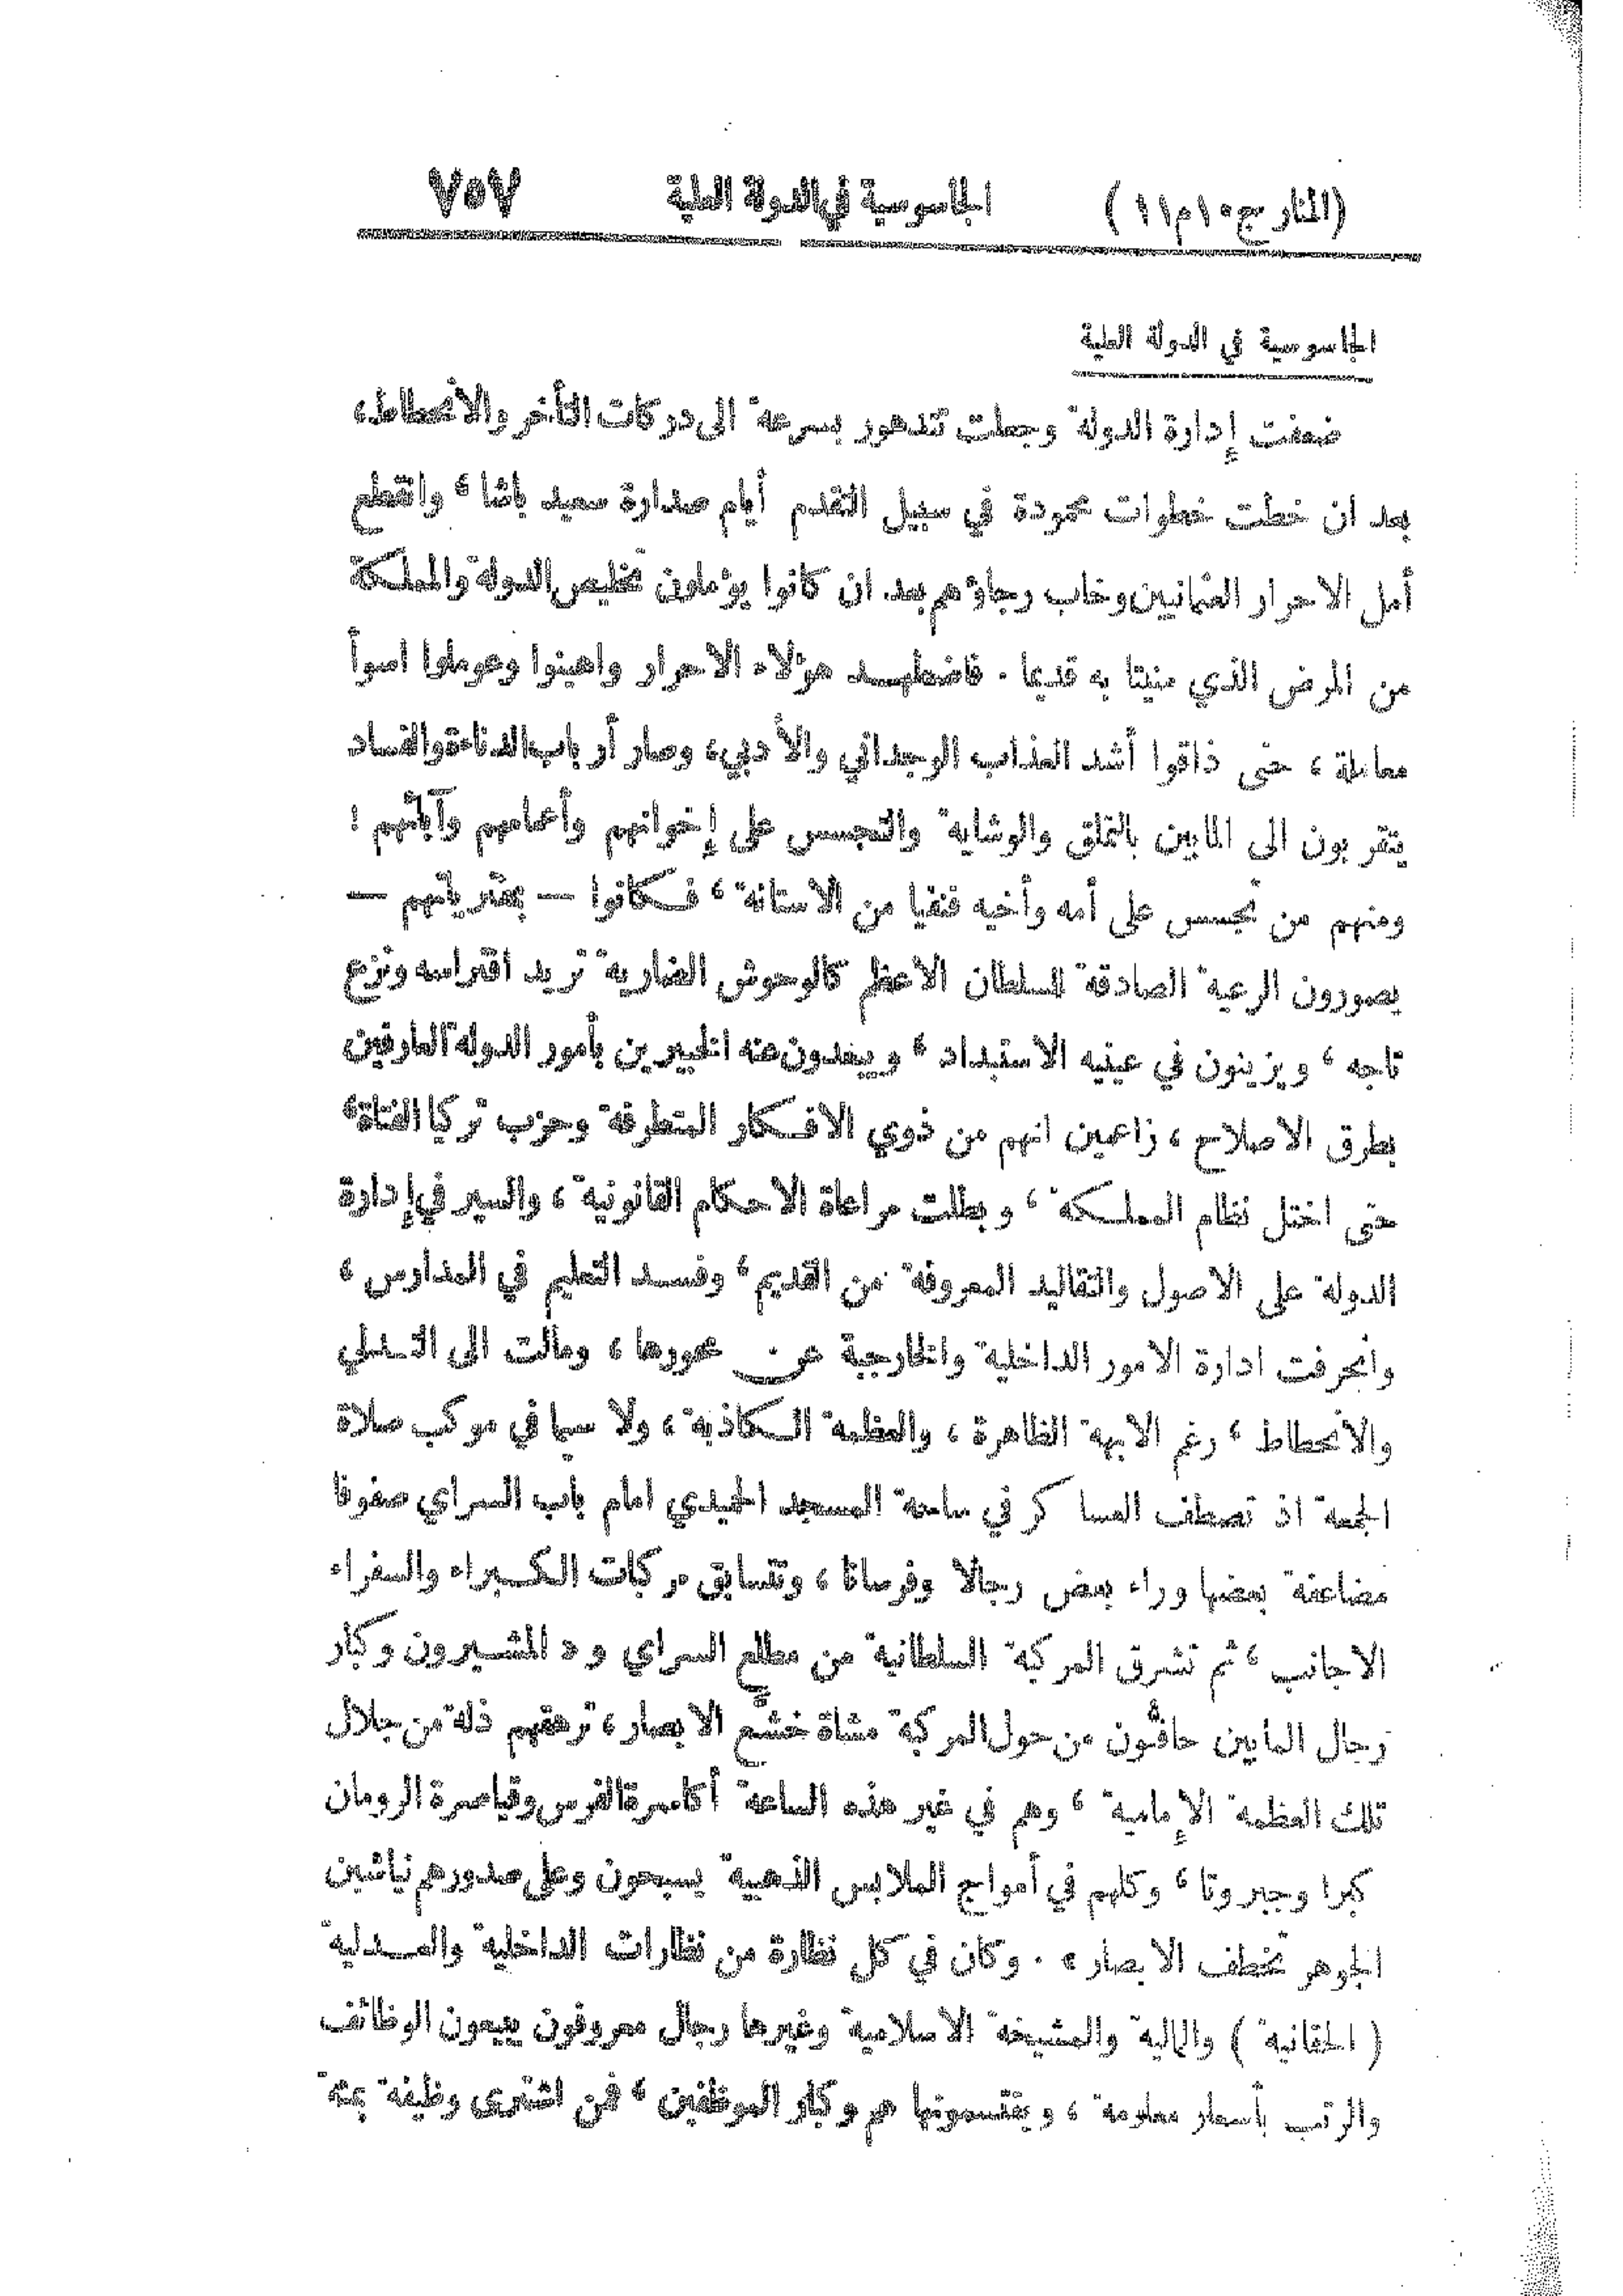 (المنار ج ١٠ م ١١) الجاسوسية في الدولة العلية ٧٥٧
الجاسوسية في الدولة العلية
ضعفت إدارة الدولة وجعلت تتدهور بسرعة الى دركات التأخر والأنحطاط،
بعد ان خطت خطوات محمودة في سبيل التقدم أيام صدارة سعيد باشا، وانقطع
أمل الاحرار العثمانيين وخاب رجاؤهم بعد ان كانوا يؤملون تخليص الدولة والمملكة
من المرض الذي منيتا به قديما. فاضطهد هؤلاء الاحرار واهينوا وعوملوا اسوأ
معاملة، حتى ذاقوا أشد العذاب الوجداني والأدبي، وصار أرباب الدناءة والفساد
يتقربون الى المابين بالتملق والوشاية والتجسس على إخوانهم وأعمامهم وآبائهم!
ومنهم من تجسس على أمه وأخيه فنفيا من الاستانة، فكانوا — بمفترياتهم —
يصورون الرعية الصادقة للسلطان الاعظم كالوحوش الضارية تريد افتراسه ونزع
تاجه، ويزينون في عينيه الاستبداد، ويبعدون عنه الخبيرين بأمور الدولة العارفين
بطرق الاصلاح، زاعمين انهم من ذوي الافكار المتطرفة وحزب تركيا الفتاة،
حتى اختل نظام المملكة، وبطلت مراعاة الاحكام القانونية، والسير في إدارة
الدولة على الاصول والتقاليد المعروفة من القديم، وفسد التعليم في المدارس،
وانحرفت ادارة الامور الداخلية والخارجية عن محورها، ومالت الى التدلي
والانحطاط، رغم الابهة الظاهرة، والعظمة الكاذبة، ولا سيما في موكب صلاة
الجمعة اذ تصطف العساكر في ساحة المسجد الحميدي امام باب السراي صفوفا
مضاعفة بعضها وراء بعض رجالا وفرسانا، وتتسابق مركبات الكبراء والسفراء
الاجانب، ثم تشرق المركبة السلطانية من مطلع السراي و« المشيرون وكبار
رجال المابين حافّون من حول المركبة مشاة خشّع الابصار، ترهقهم ذلة من جلال
تلك العظمة الإمامية، وهم في غير هذه الساعة أكاسرة الفرس وقياصرة الرومان
كبرا وجبروتا، وكلهم في أمواج الملابس الذهبية يسبحون وعلى صدورهم نياشين
الجوهر تخطف الابصار». وكان في كل نظارة من نظارات الداخلية والعدلية
(الحقانية) والمالية والمشيخة الاسلامية وغيرها رجال معروفون يبيعون الوظائف
والرتب بأسعار معلومة، ويقتسمونها هم وكبار الموظفين، فمن اشترى وظيفة بمئة